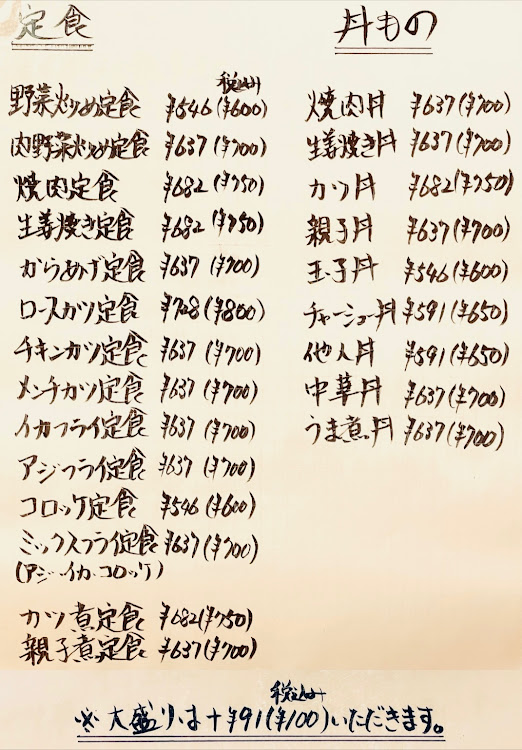 定食
税込み
野菜炒め定食 ¥546(¥600)
肉野菜炒め定食 ¥637(¥700)
焼肉定食 ¥682(¥750)
生姜焼き定食 ¥682(¥750)
からあげ定食 ¥637(¥700)
ロースカツ定食 ¥728(¥800)
チキンカツ定食 ¥637(¥700)
メンチカツ定食 ¥637(¥700)
イカフライ定食 ¥637(¥700)
アジフライ定食 ¥637(¥700)
コロッケ定食 ¥546(¥600)
ミックスフライ定食 ¥637(¥700)
(アジ・イカ・コロッケ)
カツ煮定食 ¥682(¥750)
親子煮定食 ¥637(¥700)
丼もの
焼肉丼 ¥637(¥700)
生姜焼き丼 ¥637(¥700)
カツ丼 ¥682(¥750)
親子丼 ¥637(¥700)
玉子丼 ¥546(¥600)
チャーシュー丼 ¥591(¥650)
他人丼 ¥591(¥650)
中華丼 ¥637(¥700)
うま煮丼 ¥637(¥700)
税込み
※大盛りは+¥91(¥100)いただきます。